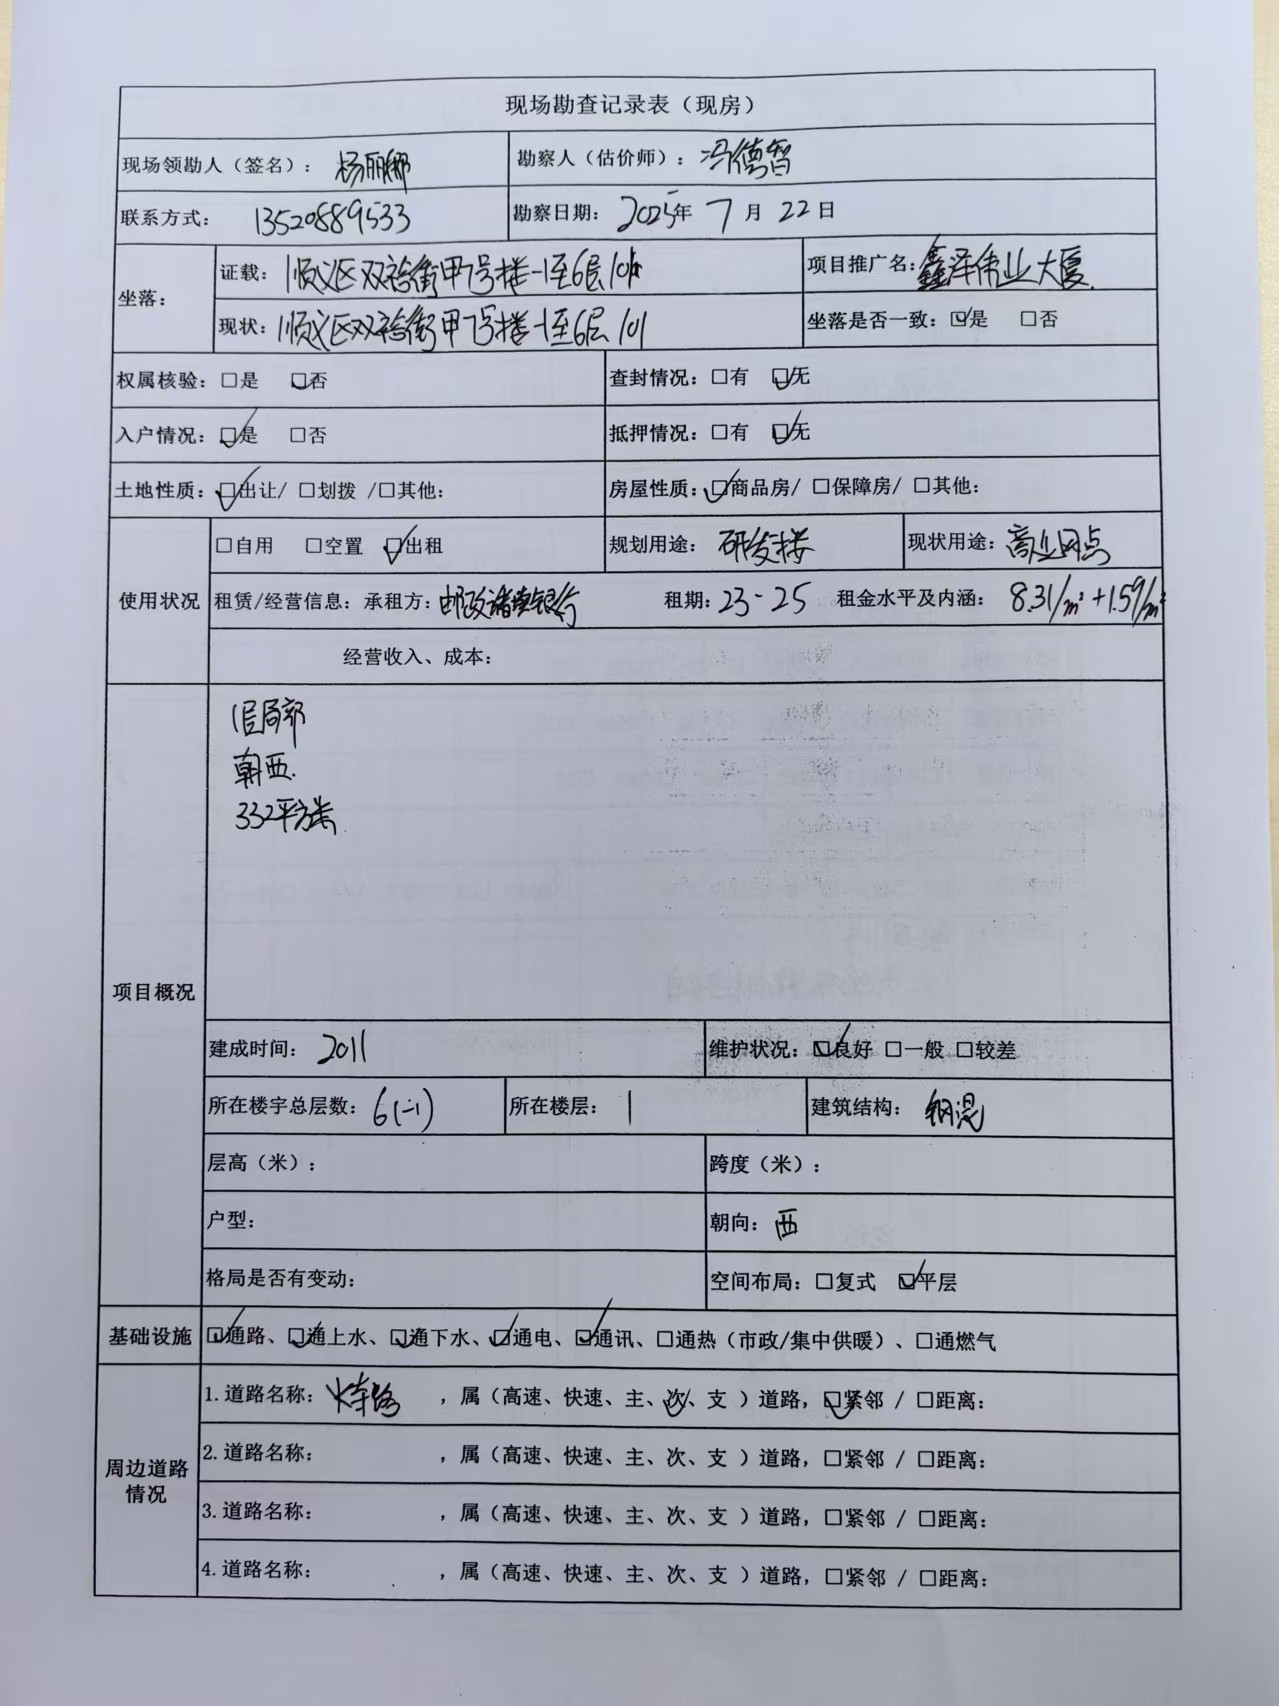 现场勘查记录表（现房）
现场领勘人（签名）： 杨丽娜 勘察人（估价师）： 冯德智
联系方式： 13520889533 勘察日期： 2025年 7月 22日
坐落： 证载： 顺义区双裕街甲7号楼-1至6层101 项目推广名： 鑫泽伟业大厦
现状： 顺义区双裕街甲7号楼-1至6层101 坐落是否一致： ☑是 □否
权属核验： □是 ☑否 查封情况： □有 ☑无
入户情况： ☑是 □否 抵押情况： □有 ☑无
土地性质： ☑出让/ □划拨 /□其他： 房屋性质： ☑商品房/ □保障房/ □其他：
使用状况 □自用 □空置 ☑出租 规划用途： 研发楼 现状用途： 商业网点
租赁/经营信息：承租方： 邮政储蓄银行 租期： 23-25 租金水平及内涵： 8.31/m²+1.59/m²
经营收入、成本：
1层局部
朝西.
332平方米.
项目概况
建成时间： 2011 维护状况： ☑良好 □一般 □较差
所在楼宇总层数： 6(-1) 所在楼层： 1 建筑结构： 钢混
层高（米）： 跨度（米）：
户型： 朝向： 西
格局是否有变动： 空间布局： □复式 ☑平层
基础设施 ☑通路、☑通上水、☑通下水、☑通电、☑通讯、□通热（市政/集中供暖）、□通燃气
周边道路情况 1.道路名称： ，属（高速、快速、主、次、支 ）道路，☑紧邻 / □距离：
2.道路名称： ，属（高速、快速、主、次、支 ）道路，□紧邻 / □距离：
3.道路名称： ，属（高速、快速、主、次、支 ）道路，□紧邻 / □距离：
4.道路名称： ，属（高速、快速、主、次、支 ）道路，□紧邻 / □距离：